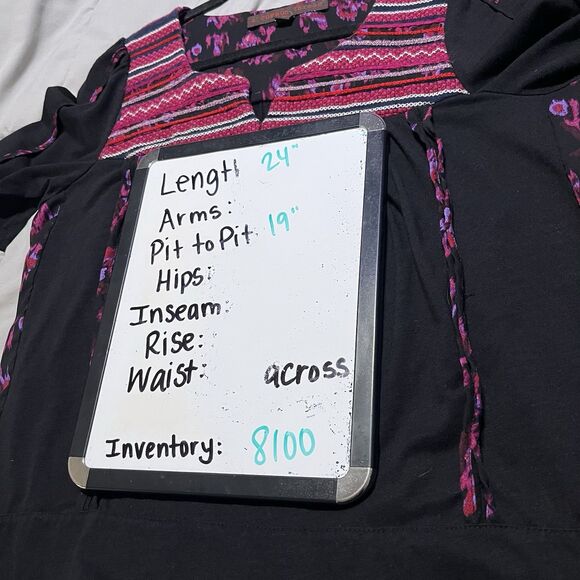 Length 24"
Arms:
Pit to Pit 19"
Hips:
Inseam:
Rise:
Waist: across
Inventory: 8100